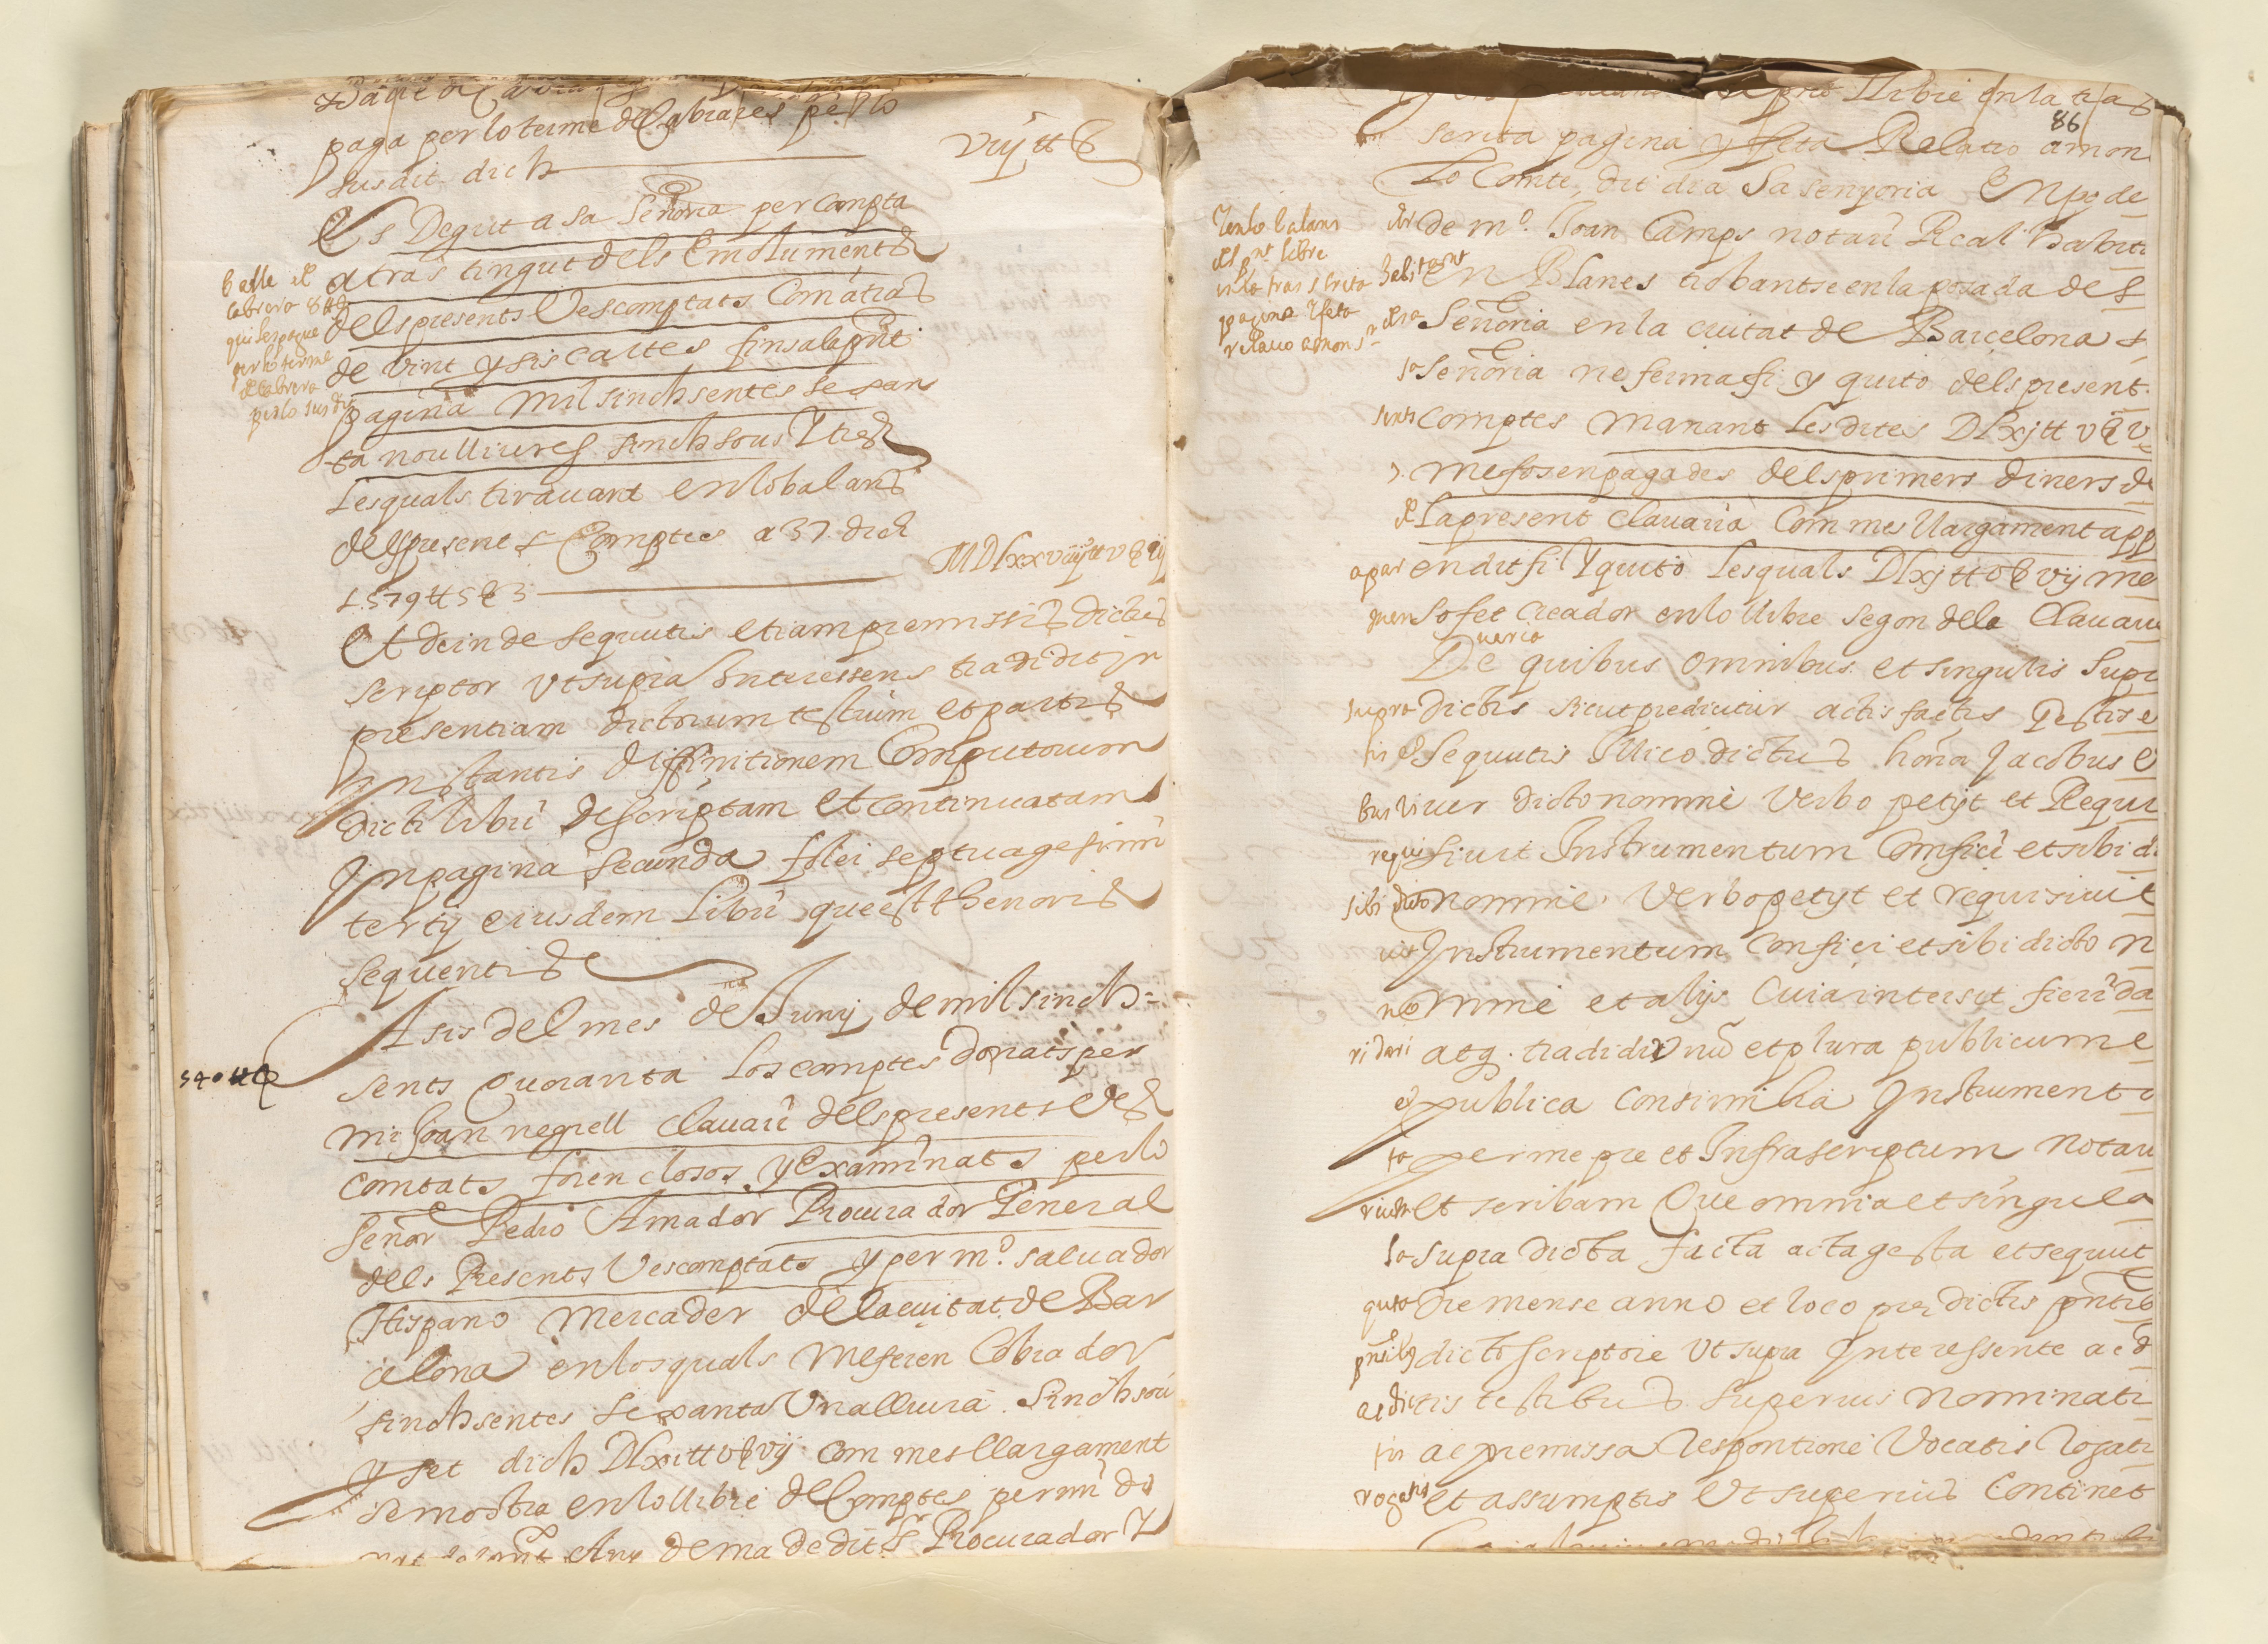 paga per lo terme de Cabrares per lo
susdit dich
viij tt ß
Es Degut a sa Señoria per Compta
atras tingut dels Emoluments
dels presents Vescomptats Com atras
de vint y sis cartes fins a la pnt
pagina mil sinchsentes sexan
ta nou lliures sinch sous Y tres
Lesquals tiravant en lo balans
dels present Comptes a 37 dich
1579 tt 5 ß 3
MDLxxviiij tt v ß iij
Balle de
Cabrera 8 tt ß
qui es pague
per lo terme
de Cabrera
per lo susdit
Et deinde sequutis etiam premissis dictus
scriptor ut supra Interessens tradidit in
presentiam dictorum testium et partis
Instantis diffinitionem Computorum
dicti libri descriptam et continuatam
In pagina secunda folei septuagesimi
tertij eiusdem libri que est thenoris
sequentis
A sis del mes de Juny de mil sinch
sents Quoranta los comptes donats per
540 tt
mi Joan negrell clavari dels presents Ves
comtats foren closos y Examinats per lo
Señor Pedro Amador Procurador General
dels Presents Vescomptats y per mº. salvador
Hispano Mercader de la ciutat de Bar
celona en los quals me feren Cobrador
sinchsentes sexanta Una lliura Sinch sou
y set dich DLxi tt v ß vij com mes llargament
se mostra en lo llibre de Comptes per mi do
Any de ma de dit Sr Procurador Y
llibre en la tras
86
scrita pagina y feta Relatio a mon
Lo Comte, dit dia Sa senyoria En pode
de mº. Joan Camps notari Real habita
habitant En Blanes trobantse en la posada de S
Señoria en la ciutat de Barcelona
Señoria ne ferma fi y quito dels present
Comptes manant les dites DLxj tt v ß v
me fosen pagades dels primers diners de
la present clavaria Com mes llargament app
apar en dit fi Y quito Lesquals DLxj tt v ß vij me
so fet creador en lo llibre segon dela Clavari
varia
De quibus omnibus et singulis Supr
supra dictis sicut predicitur actis factis Gestis e
sequutis Illico dictus honor Jacobus
bus viver dicto nomine Verbo petijt et Requi
requi siuit Instrumentum Confici et sibi di
sibi dicto nomine. Verbo petijt et requisiuit
Instrumentum confici et sibi dicto n
no mine et alijs Cuia intersit fieri da
ri dari atq. tradi unu et plura publicum e
et publica Consimilia Instrument
per me pre et Infrascriptum Nota
rium et scribam Que omnia et singula
la supra dicta facta acta gesta et sequut
Die mense anno et loco predictis pntib
dicto scriptore Ut supra Interessente ac d
ac dictis testibus superius nominati
tis ac premissa Responsione Vocatis Rogati
rogatis et assumptis Ut superius Continet
Tenlo balans
del pnt libre
en la trascrita
pagina Y feta
relatio a mon Sr